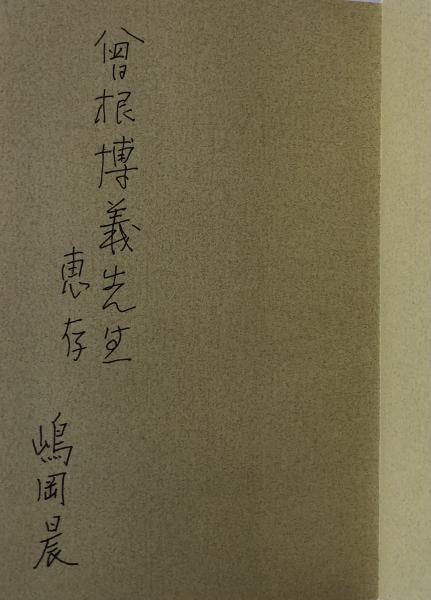 曾根博義先生
恵存
嶋岡晨